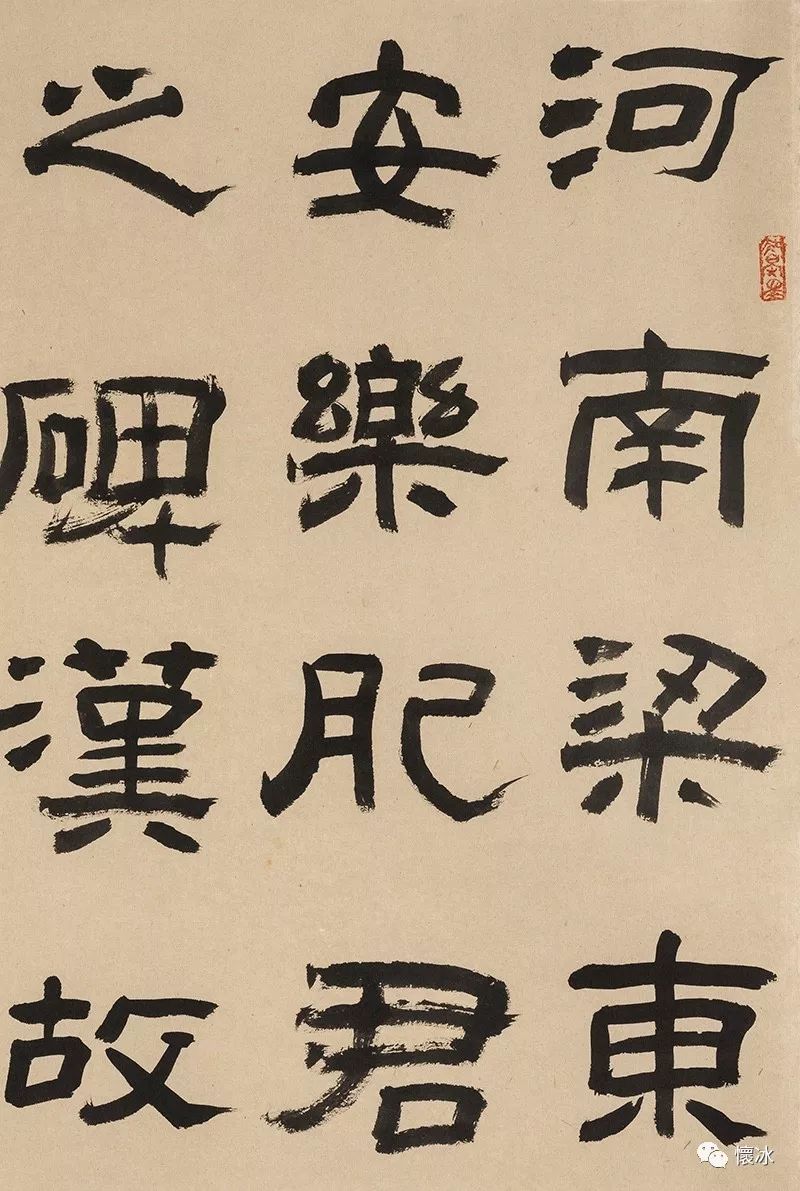 河南梁東
安樂肥君
之碑漢故
懷冰